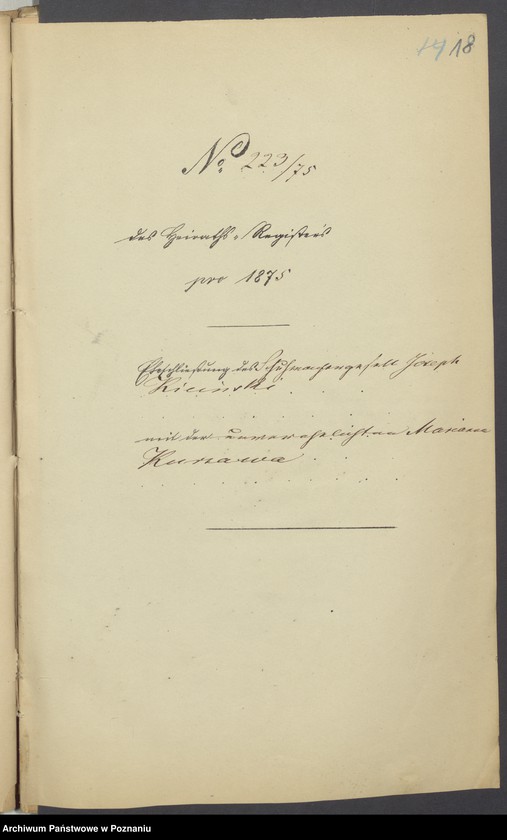 14 18
No 223/75
des Heiraths-Registers
pro 1875
Eheschließung des Schuhmachergesell Joseph
Kicinski
mit der unverehelichten Mariana
Kurzawa
Archiwum Państwowe w Poznaniu